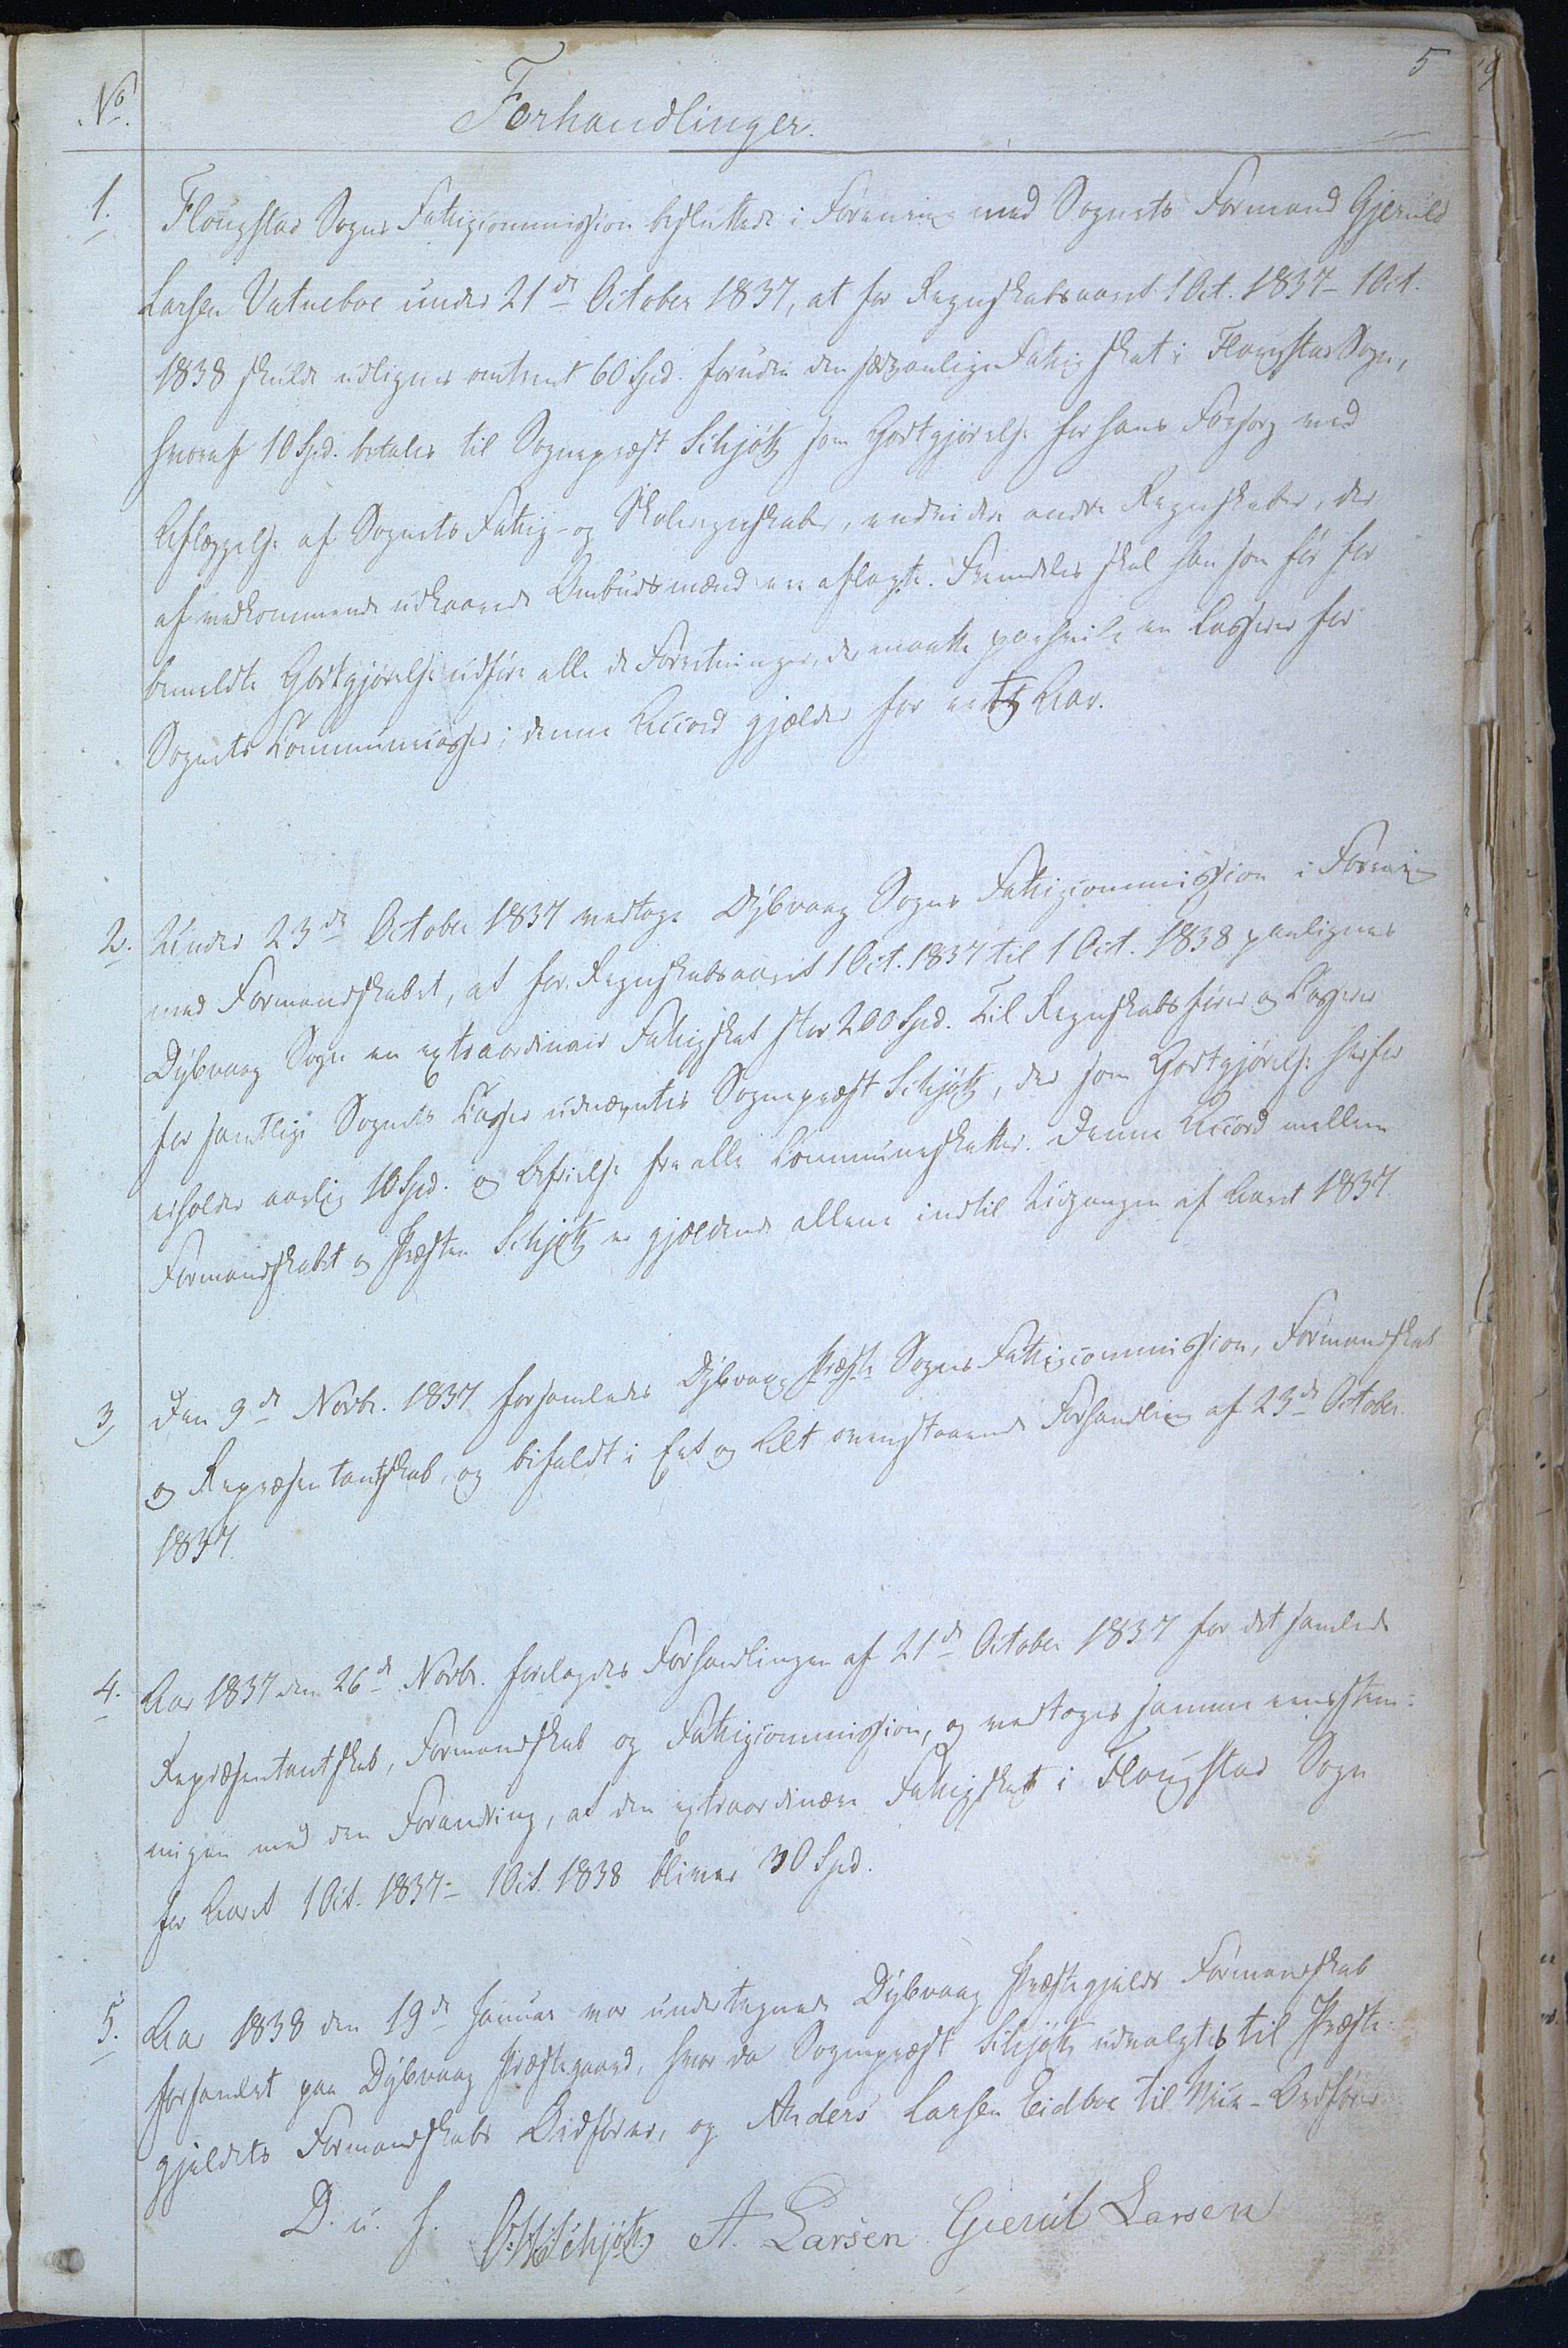 5
No.
Forhandlinger.
1. Flougstad Sogns Fattigcommission besluttede i Forening med Sognets Formand Gjeruld
Larsen Vatneboe under 21de October 1837, at for Regnskabsaaret 1 Oct. 1837 - 1 Oct.
1838 skulde udlignes omtrent 60 Spd. foruden den sædvanlige Fattigskat i Flougstad Sogn,
hvoraf 10 Spd. betales til Sognepræst Schjøtz som Godtgjørelse for hans Forsorg med
Aflæggelse af Sognets Fattig- og Skoleregnskaber, endvidere andre Regnskaber, der
af vedkommende udkaarede Ombudsmænd ere aflagte. Fremdeles skal han som før for
bemeldte Godtgjørelse udføre alle de Forretninger, der maatte paahvile en Casserer for
Sognets Communecasser; denne Accord gjælder for eet Aar.
2. Under 23de October 1837 vedtoge Dybvaag Sogns Fattigcommission i Forening
med Formandskabet, at for Regnskabsaaret 1 Oct. 1837 til 1 Oct. 1838 paalignes
Dybvaag Sogn en extraordinair Fattigskat stor 200 Spd. Til Regnskabsfører og Casserer
for samtlige Sognets Casser udnævntes Sognepræst Schjøtz, der som Godtgjørelse herfor
erholder aarlig 10 Spd. og Befrielse fra alle Communeskatter. Denne Accord mellem
Formandskabet og Præsten Schjøtz er gjældende allene indtil Udgangen af Aaret 1837
3, Den 9de Novbr. 1837 forsamledes Dybvaag Præste Sogns Fattigcommission, Formandskab
og Repræsentantskab, og bifaldt i Eet og Alt ovenstaaende Forhandling af 23de October
1837.
4. Aar 1837 den 26de Novbr. forelagdes Forhandlingen af 21de October 1837 for det samlede
Repræsentantskab, Formandskab og Fattigcommission, og vedtoges samme eensstem-
migen med den Forandring, at den extraordinære Fattigskat i Flougstad Sogn
for Aaret 1 Oct. 1837 - 1 Oct. 1838 bliver 30 Spd.
5. Aar 1838 den 19de Januar var undertegnede Dybvaag Præstegjelds Formandskab
forsamlet paa Dybvaag Præstegaard, hvor da Sognepræst Schjøtz udvalgtes til Præste-
gjeldets Formandskabs Ordfører, og Anders Larsen Eidboe til Vice-Ordfører
D. u. s. Schjøtz A. Larsen Gierul Larsen